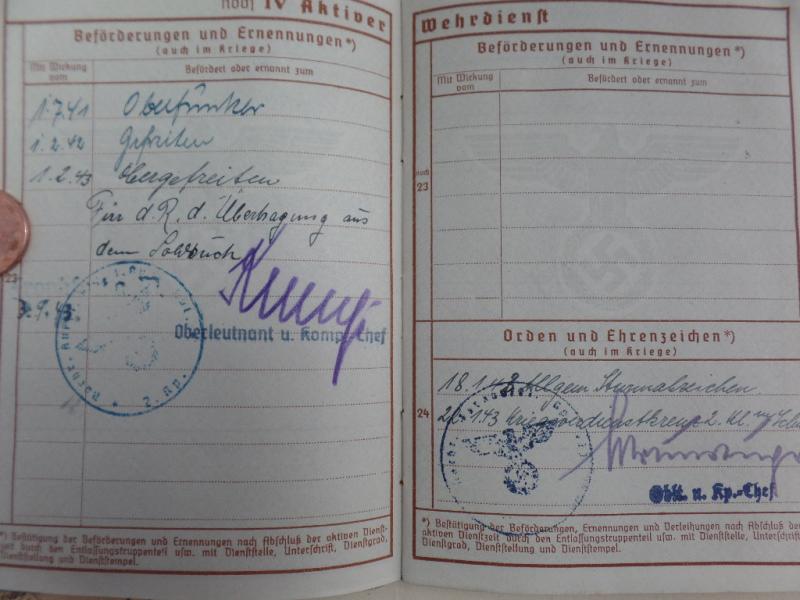 noch IV Aktiver
Beförderungen und Ernennungen*)
(auch im Kriege)
Mit Wirkung vom
Befördert oder ernannt zum
1.7.41 Oberfunker
1.2.42 Gefreiten
1.2.43 Obergefreiten
Für d. R. d. Übertragung aus
dem Soldbuch
23
3.9.43
Oberleutnant u. Komp.-Chef
2. Kp.
*) Bestätigung der Beförderungen, Ernennungen und Verleihungen nach Abschluß der aktiven Dienst-
zeit durch den Entlassungstruppenteil usw. mit Dienststelle, Unterschrift, Dienstgrad,
Dienststellung und Dienststempel.
Wehrdienst
Beförderungen und Ernennungen*)
(auch im Kriege)
Mit Wirkung vom
Befördert oder ernannt zum
noch
23
Orden und Ehrenzeichen*)
(auch im Kriege)
18.1.42 Allgem. Sturmabzeichen
24
Kriegsverdienstkreuz 2. Kl. m.
Oblt. u. Kp.-Chef
*) Bestätigung der Beförderungen, Ernennungen und Verleihungen nach Abschluß der
aktiven Dienstzeit durch den Entlassungstruppenteil usw. mit Dienststelle, Unterschrift,
Dienstgrad, Dienststellung und Dienststempel.